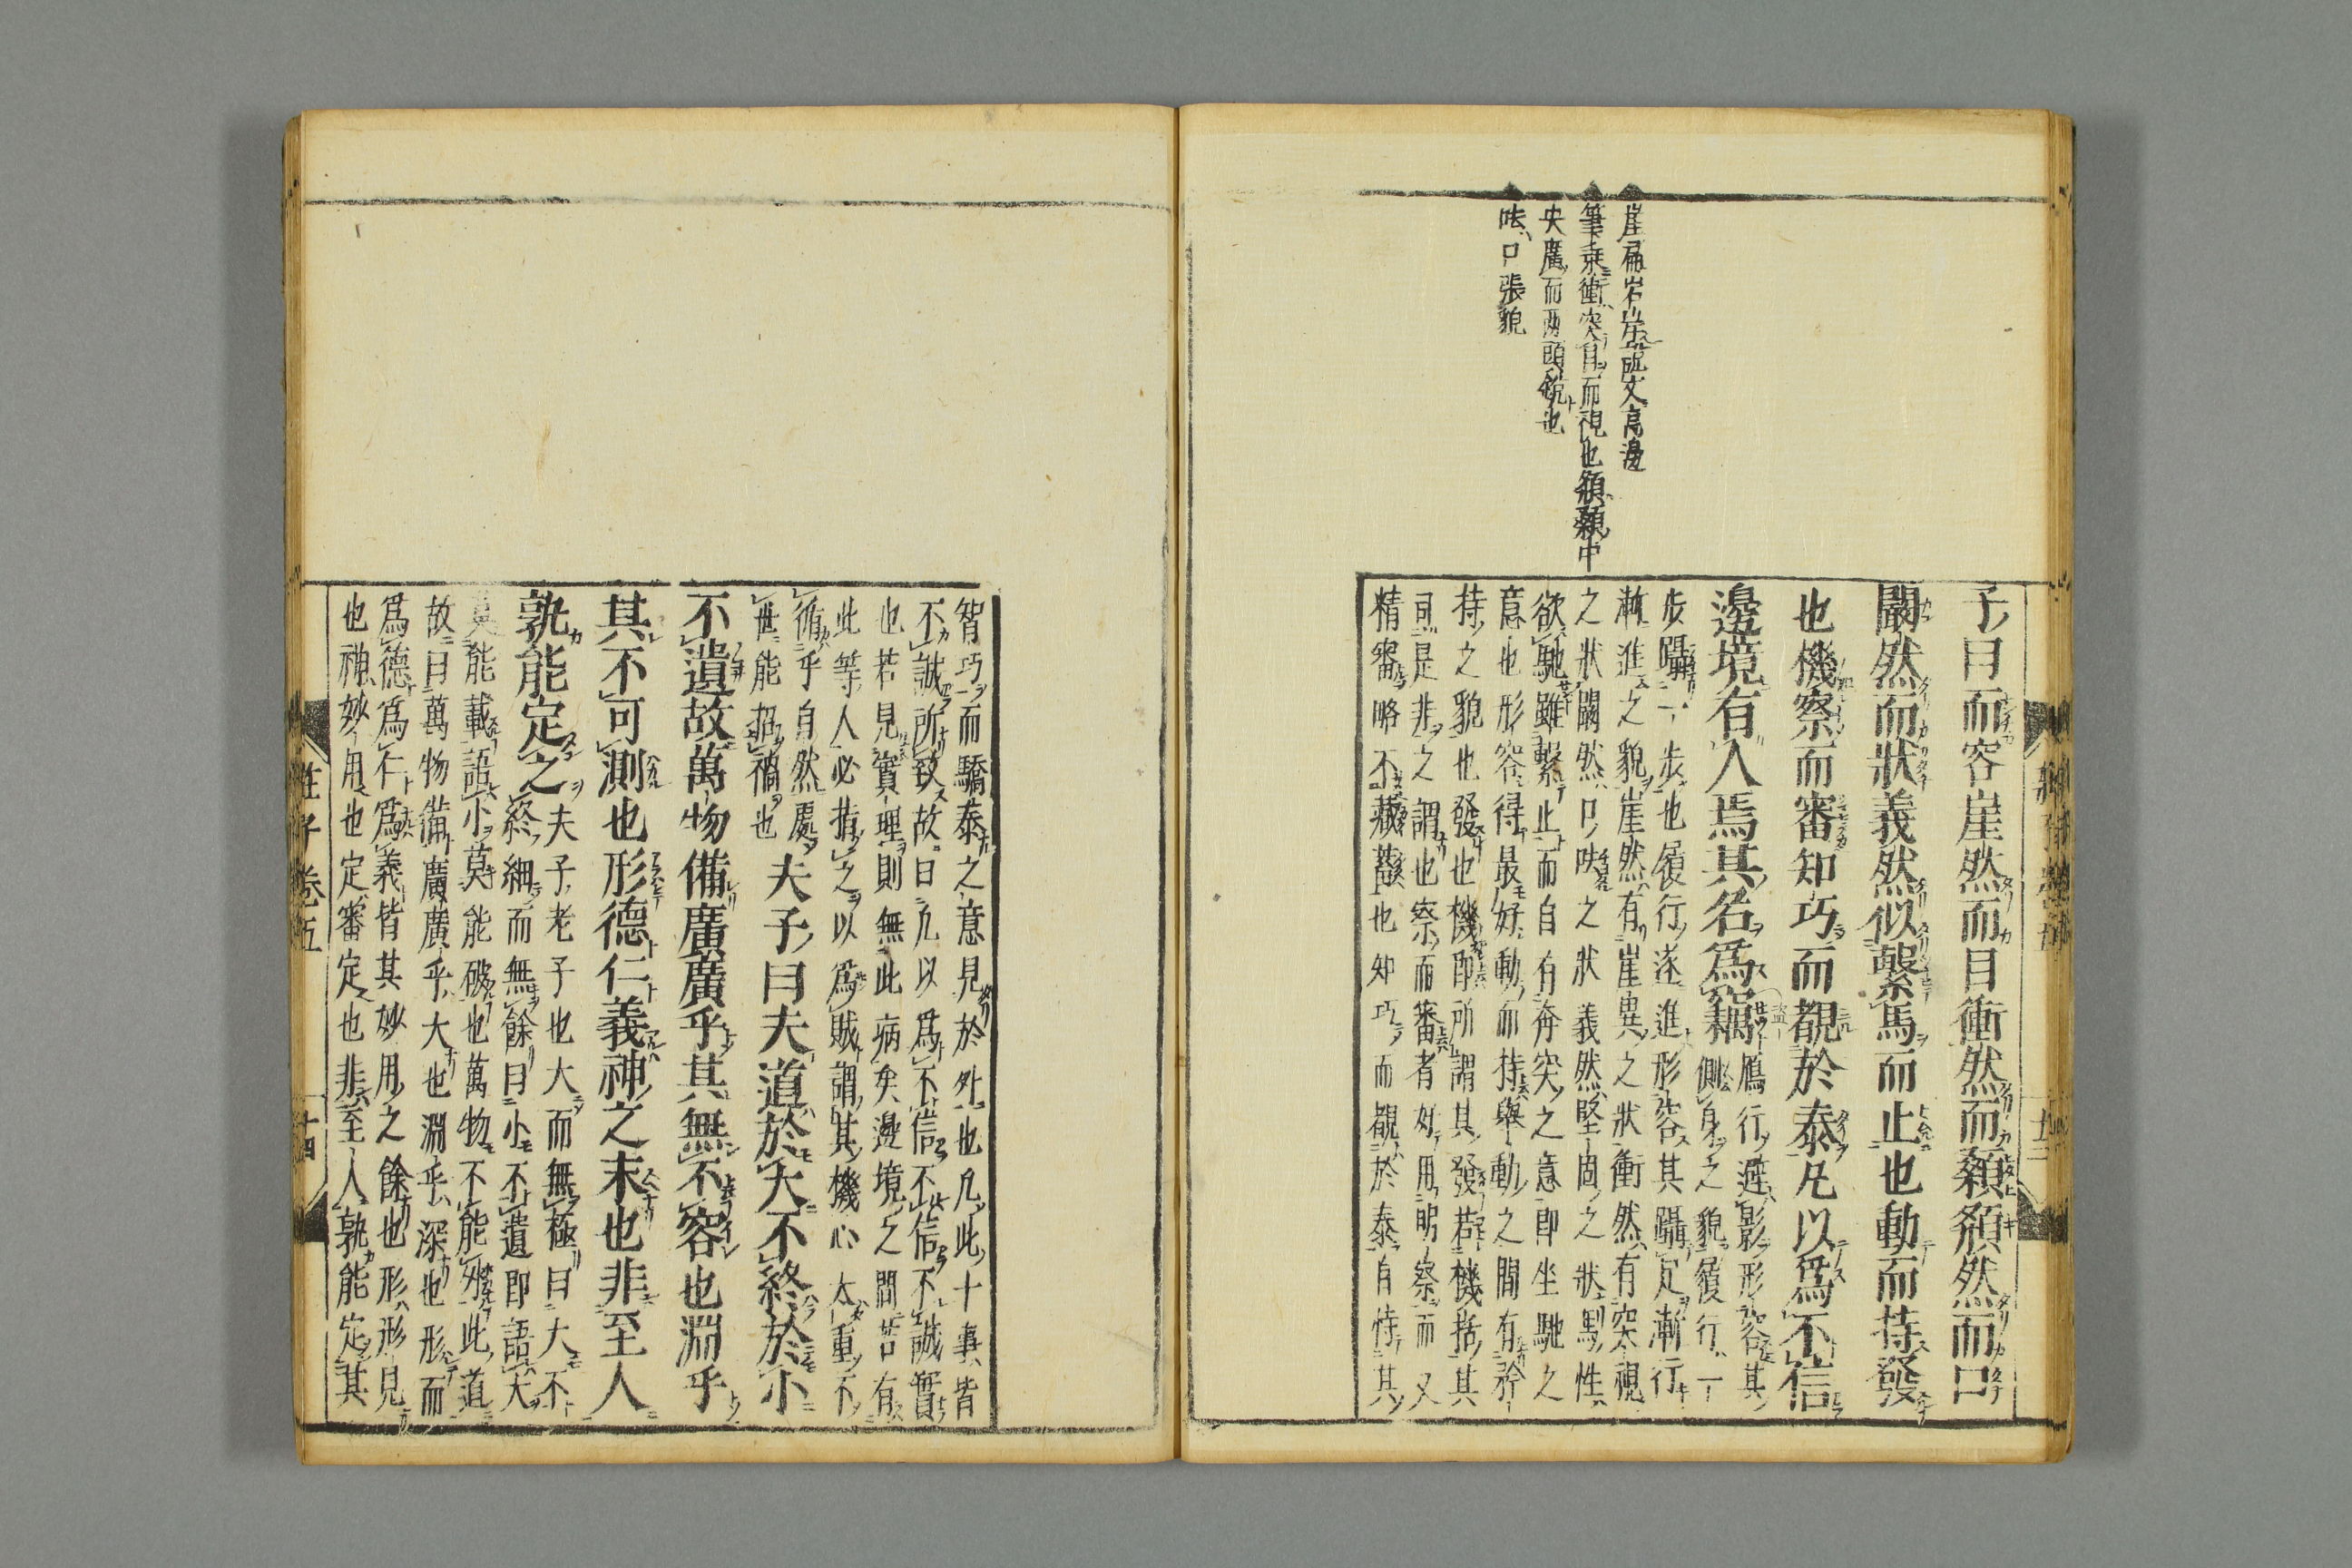 崖扁岩崖
高邊
筆乘衝突目而視也頯顙中
央廣而兩頭銳也
呿口張貌
子曰而容崖然而目衝然而顙頯然而口
闞然而狀義然似繫馬而止也動而持發
也機察而審知巧而覩於泰凡以爲不信
邊境有人焉其名爲竊鴈行避影形容其
側身之貌履行一
步躡一步也履行遂進形容其躡足漸行
漸進之貌崖然有崖異之狀衝然有突視
之狀闞然口呿之狀義然堅固之狀馬性
欲馳雖繫止而自有奔突之意即坐馳之
意也形容得最好動而持舉動之間有矜
持之貌也發也機即所謂其發若機括其
司是非之謂也察而審者好用明察而又
精審略不藏蓋也知巧而覩於泰自恃其
智巧而驕泰之意見於外也凡此十事皆
不誠所致故曰凡以爲不信不信不誠實
也若見實理則無此病矣邊境之間若有
此等人必指之以爲賊謂其機心太重不
循乎自然處
世能招禍也夫子曰夫道於大不終於小
不遺故萬物備廣廣乎其無不容也淵乎
其不可測也形德仁義神之末也非至人
孰能定之夫子老子也大而無極曰大不
終細而無餘曰小不遺即語大
莫能載語小莫能破也萬物不能外此道
故曰萬物備廣廣乎大也淵乎深也形而
爲德爲仁爲義皆其妙用之餘也形形見
也神妙用也定審定也非至人孰能定其
莊子卷五
十四